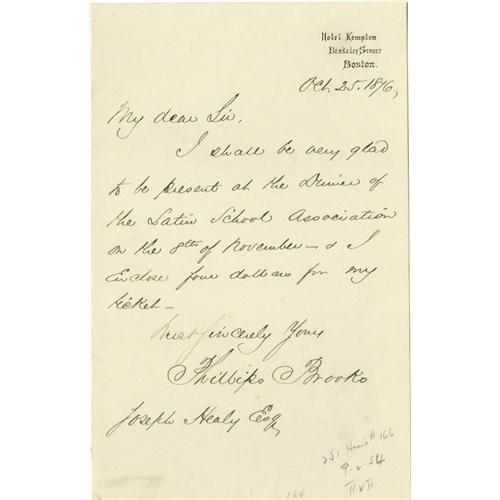 Hotel Kempton
Berkeley Street
Boston.
Oct. 25. 1876,
My dear Sir,
I shall be very glad
to be present at the Dinner of
the Latin School Association
on the 8th of November - & I
Enclose four dollars for my
ticket -
Most Sincerely Yours
Phillips Brooks
Joseph Healy Esq,
#166
9-2-54
166